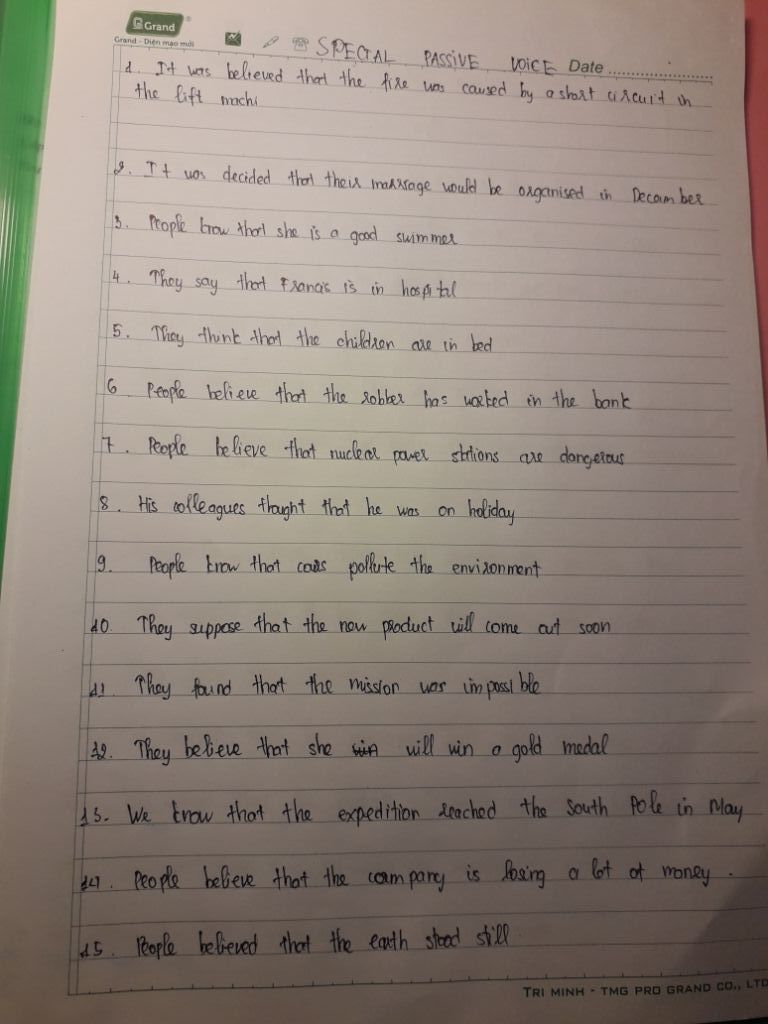 Grand
Grand - Diện mạo mới
SPECIAL PASSIVE VOICE Date
1. It was believed that the fire was caused by a short circuit in
the lift machi
2. It was decided that their marriage would be organised in December
3. People know that she is a good swimmer
4. They say that Francis is in hospital
5. They think that the children are in bed
6 People believe that the robber has worked in the bank
7. People believe that nuclear power stations are dangerous
8. His colleagues thought that he was on holiday
9. People know that cars pollute the environment
10. They suppose that the new product will come out soon
11. They found that the mission was impossible
12. They believe that she will win a gold medal
13. We know that the expedition reached the South Pole in May
14. People believe that the company is losing a lot of money.
15. People believed that the earth stood still.
TRI MINH - TMG PRO GRAND CO., LTD